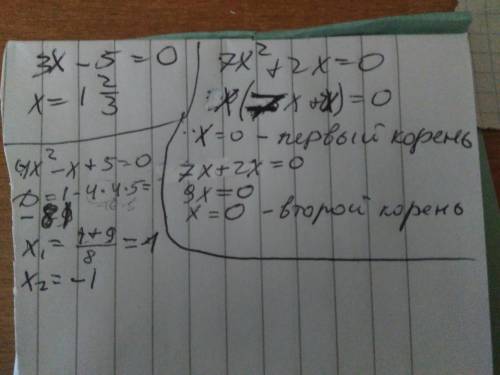 3x - 5 = 0
x = 1 2/3
4x² - x + 5 = 0
D = 1 - 4·4·5 =
x₁ = (1+9)/8 =
x₂ = -1
7x² + 2x = 0
x( x + ) = 0
x = 0 - первый корень
7x + 2x = 0
9x = 0
x = 0 - второй корень